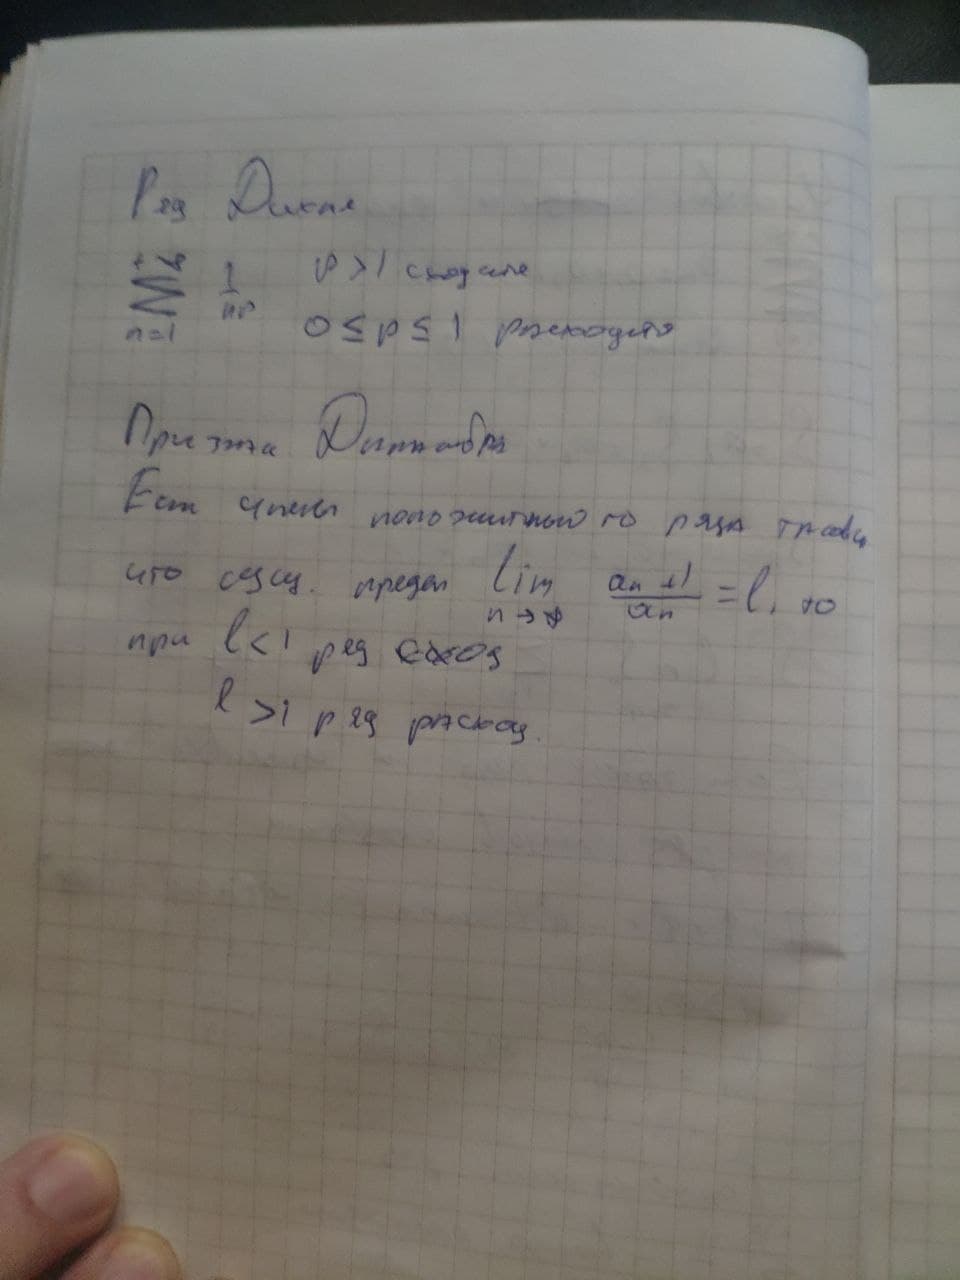 Ряд Дихле
+∞
∑ 1/n^p p > 1 сходится
n=1 0 ≤ p ≤ 1 расходится
Признак Даламбера
Если члены положительного ряда таковы
что сущ. предел lim a_n+1/a_n = l, то
n→∞
при l < 1 ряд сход
l > 1 ряд расход.